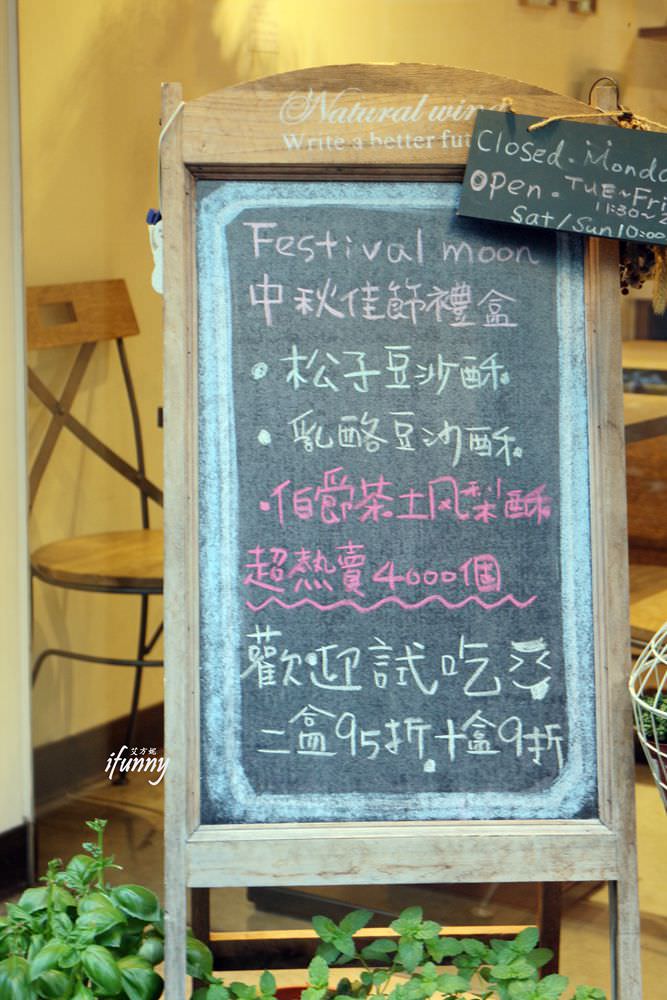 Natural wind
Write a better fut
Closed. Monda
Open. TUE~Fri
11:30~2
Sat/Sun 10:00
Festival moon
中秋佳節禮盒
• 松子豆沙酥
• 乳酪豆沙酥
• 伯爵茶土凤梨酥
超熱賣4000個
歡迎試吃
二盒95折.十盒9折
艾方妮
ifunny